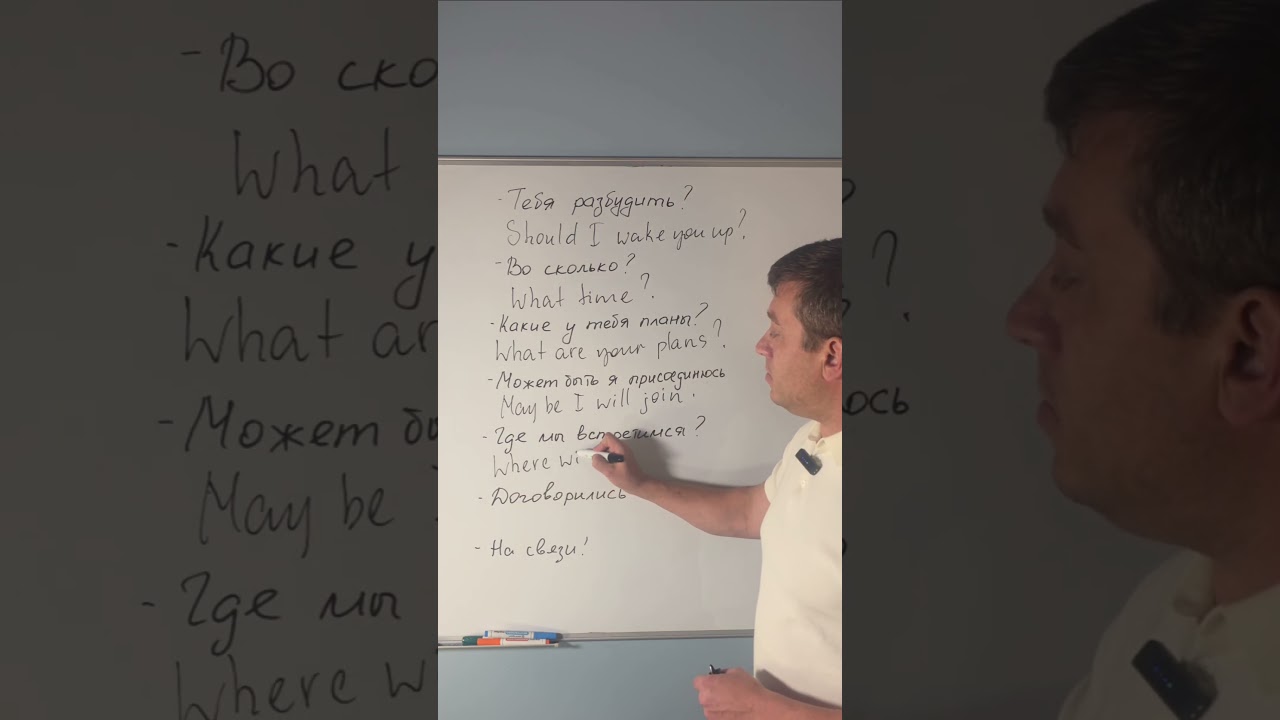 - Тебя разбудить?
Should I wake you up?
- Во сколько?
What time?
- Какие у тебя планы?
What are your plans?
- Может быть я присоединюсь
May be I will join.
- Где мы встретимся?
Where wi
- Договорились
- На связи!